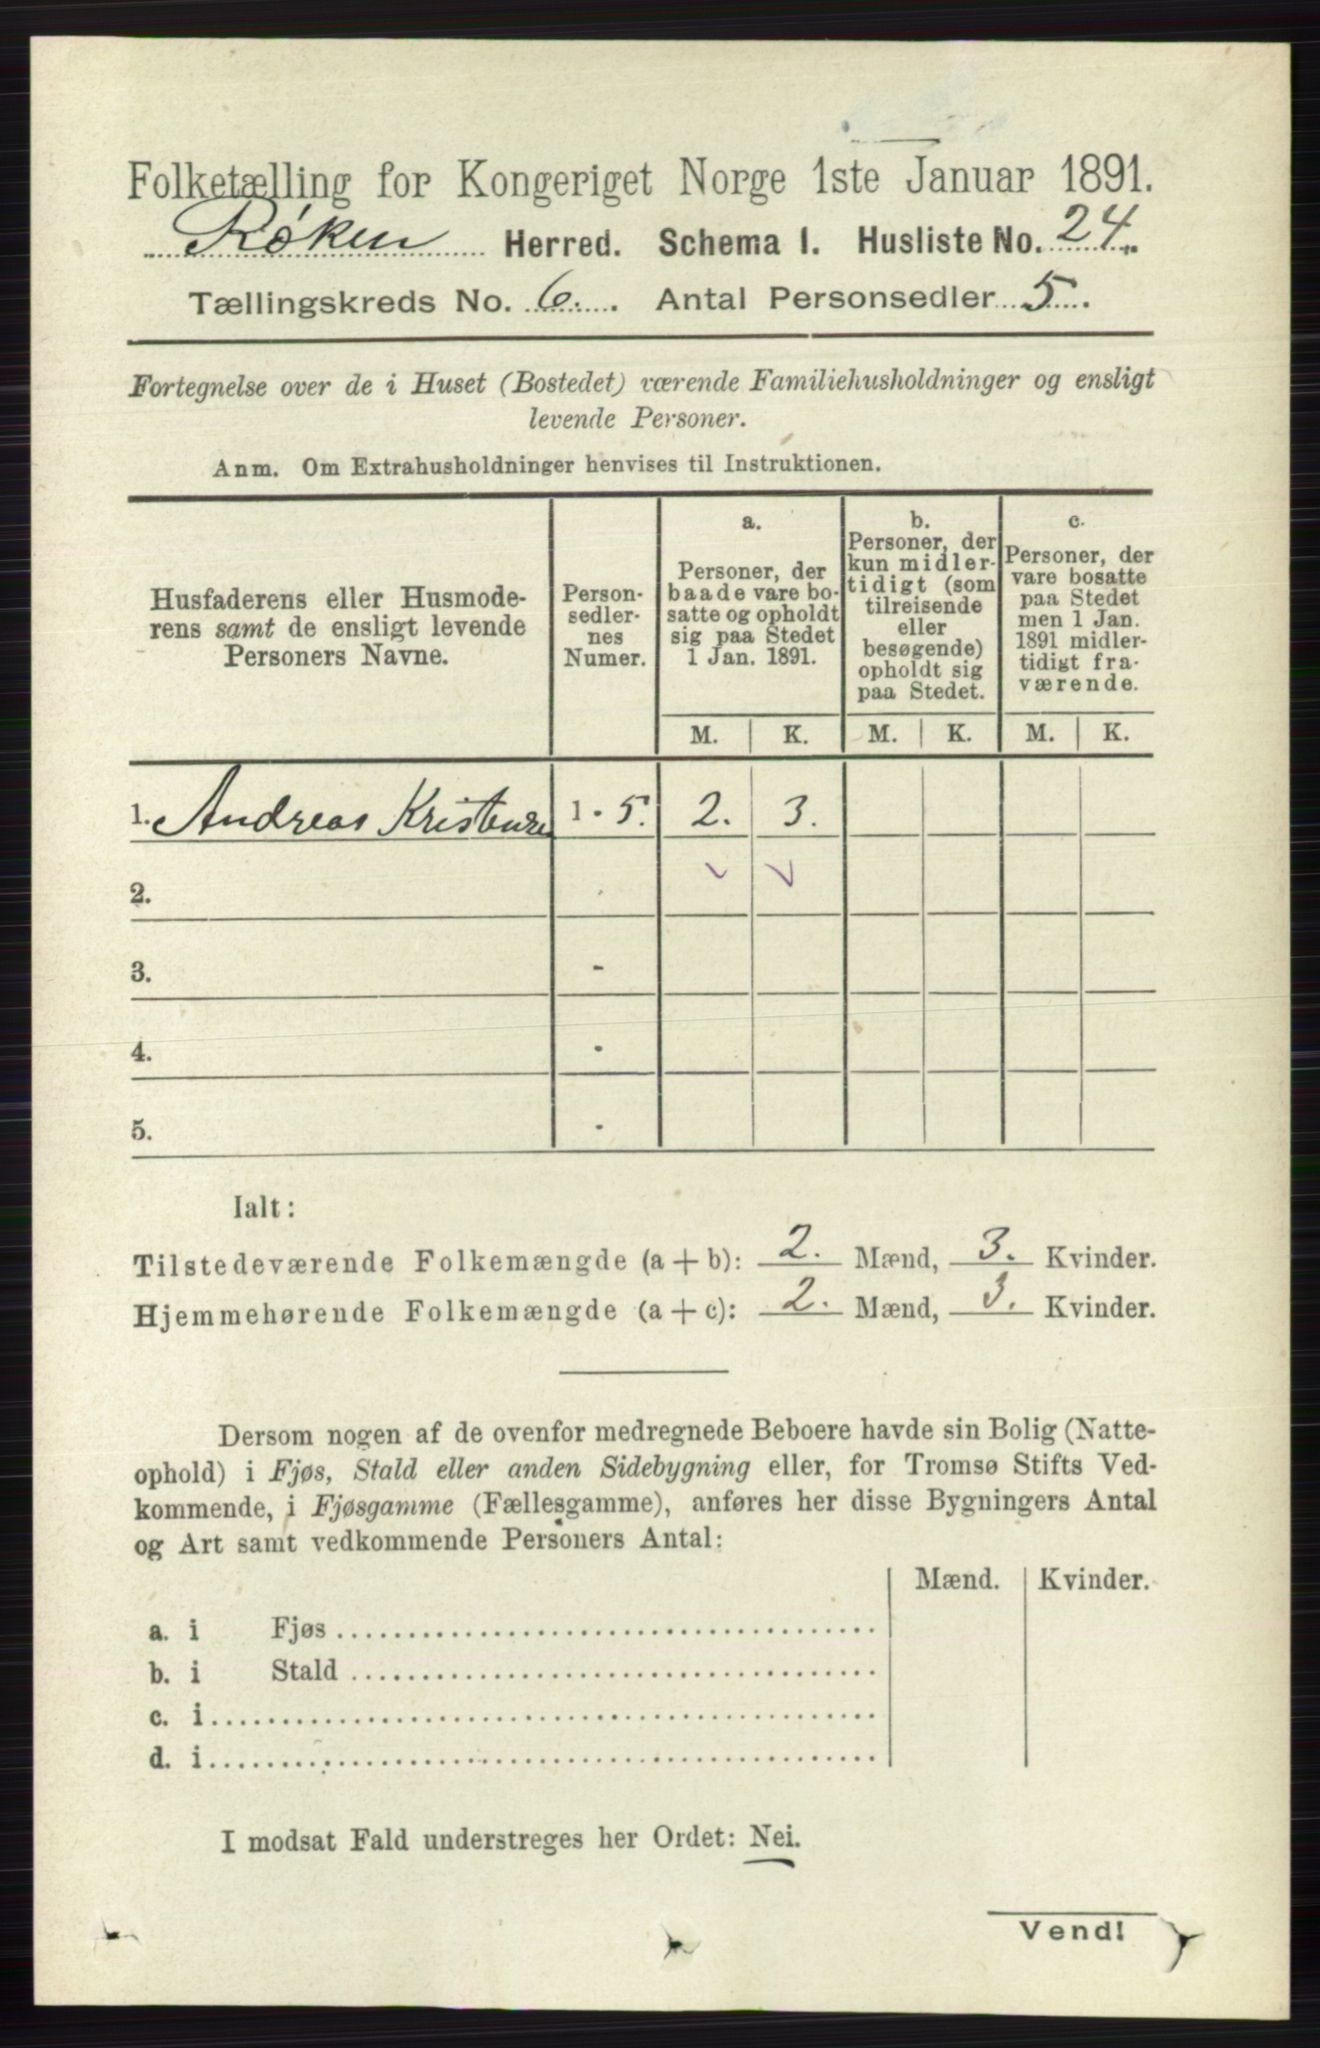 Folketælling for Kongeriget Norge 1ste Januar 1891.
Røken Herred. Schema 1. Husliste No. 24.
Tællingskreds No. 6. Antal Personsedler 5.
Fortegnelse over de i Huset (Bostedet) værende Familiehusholdninger og ensligt
levende Personer.
Anm. Om Extrahusholdninger henvises til Instruktionen.
Husfaderens eller Husmode-
rens samt de ensligt levende
Personers Navne.
Person-
sedler-
nes
Numer.
a.
Personer, der
baade vare bo-
satte og opholdt
sig paa Stedet
1 Jan. 1891.
b.
Personer, der
kun midler-
tidigt (som
tilreisende
eller
besøgende)
opholdt sig
paa Stedet.
c.
Personer, der
vare bosatte
paa Stedet
men 1 Jan.
1891 midler-
tidigt fra-
værende.
M. K. M. K. M. K.
1. Andreas Kristensen 1 - 5. 2. 3.
2.
3. -
4. -
5. -
Ialt:
Tilstedeværende Folkemængde (a + b): 2. Mænd, 3. Kvinder.
Hjemmehørende Folkemængde (a + c): 2. Mænd, 3. Kvinder.
Dersom nogen af de ovenfor medregnede Beboere havde sin Bolig (Natte-
ophold) i Fjøs, Stald eller anden Sidebygning eller, for Tromsø Stifts Ved-
kommende, i Fjøsgamme (Fællesgamme), anføres her disse Bygningers Antal
og Art samt vedkommende Personers Antal:
Mænd. Kvinder.
a. i Fjøs
b. i Stald
c. i
d. i
I modsat Fald understreges her Ordet: Nei.
Vend!